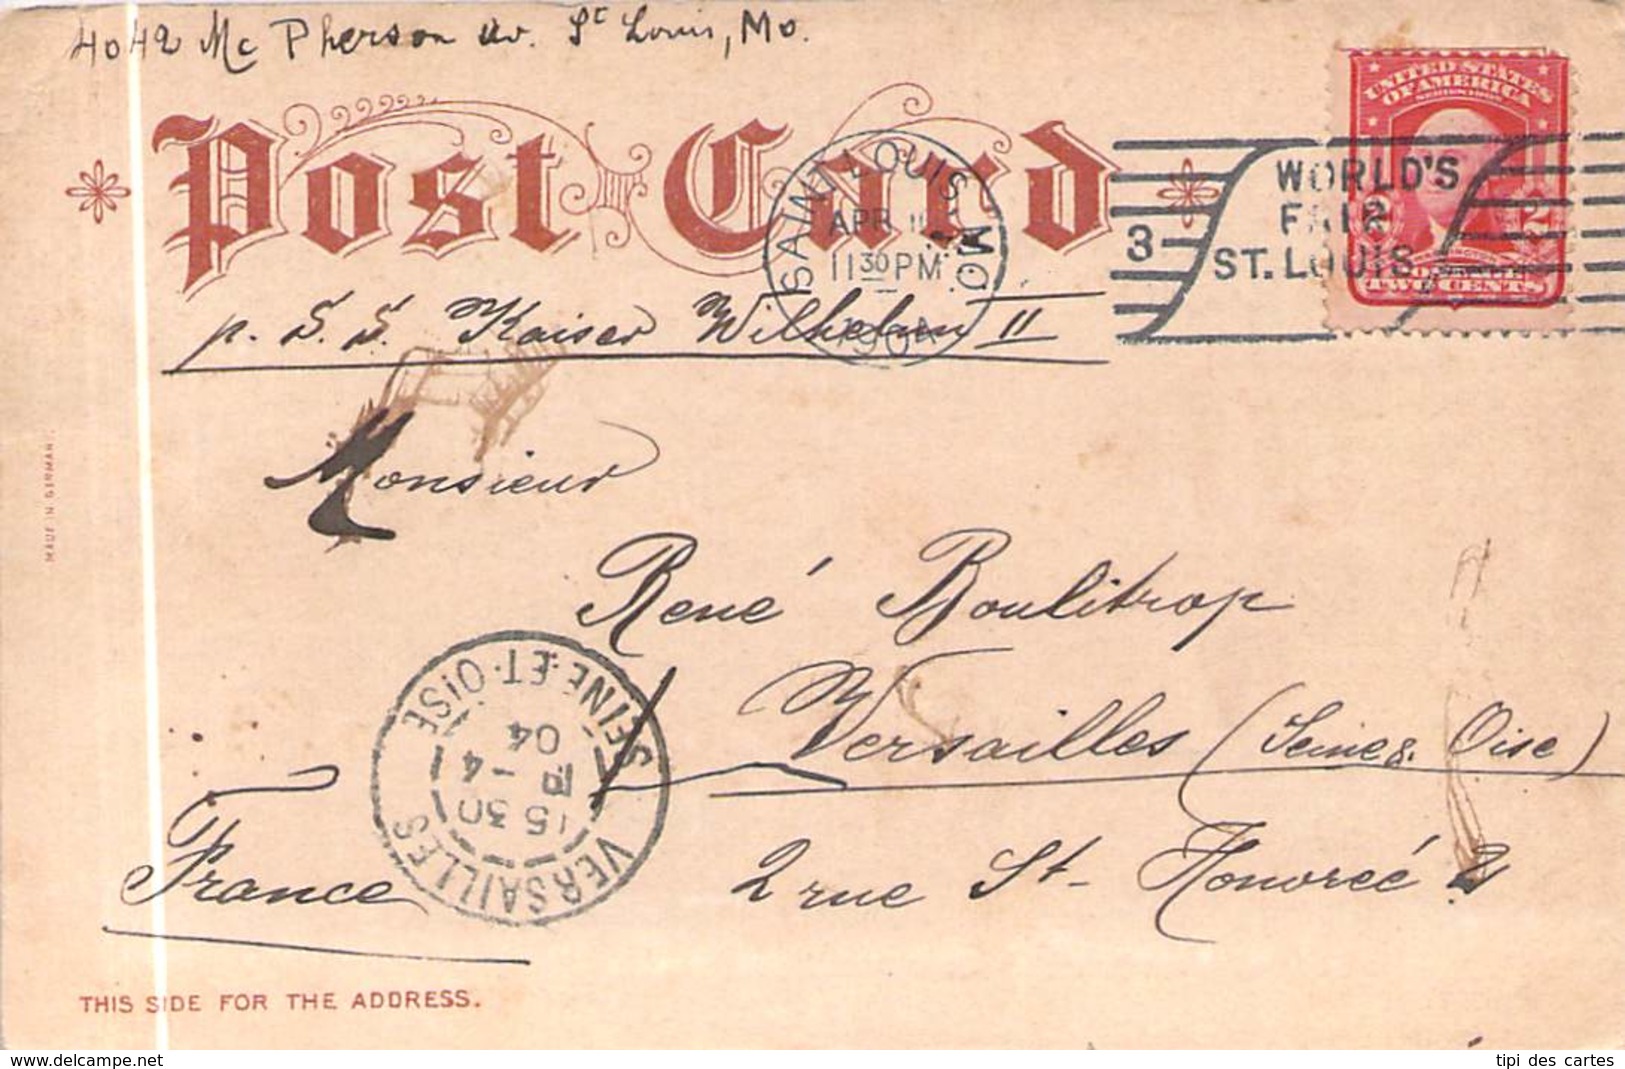 4042 Mc Pherson av. St Louis, Mo.
Post Card
UNITED STATES
OF AMERICA
TWO CENTS
SAINT LOUIS MO.
APR
11 30 PM
1904
3
WORLD'S
FAIR
ST. LOUIS
p. S. S. Kaiser Wilhelm II
Monsieur
René Boulitrop
Versailles (Seine & Oise)
2 rue St- Honoreé 2
France
VERSAILLES
15 30
-4
04
SEINE-ET-OISE
MADE IN GERMANY
THIS SIDE FOR THE ADDRESS.
tipi des cartes
www.delcampe.net